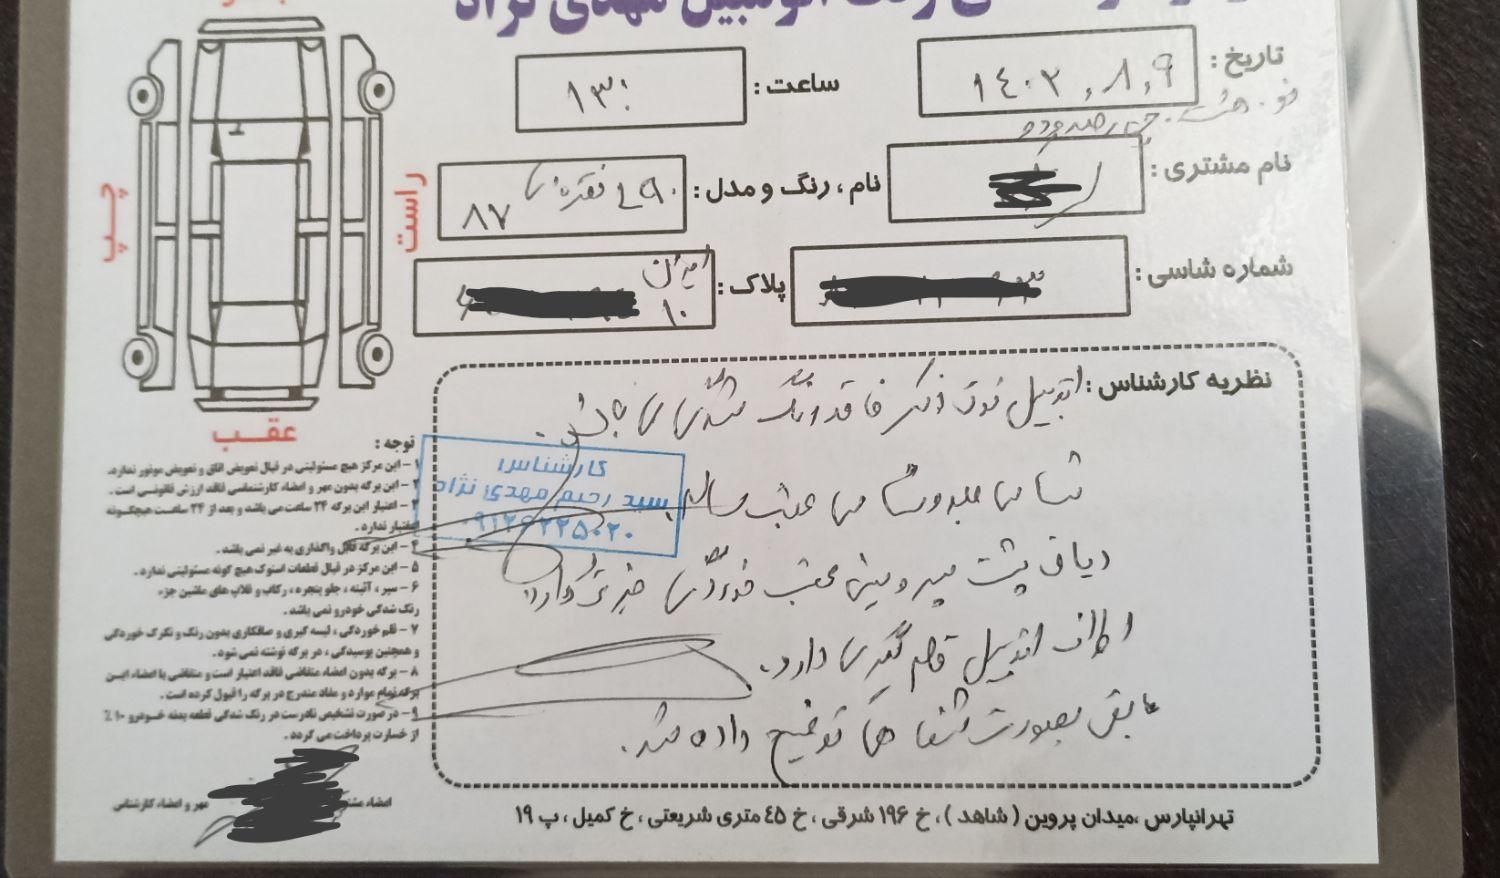 رنگ اتومبیل مهدی نژاد
تاریخ : ۱۴۰۳,۸,۹
ساعت : ۱۳:
نام مشتری :
نام ، رنگ و مدل : L۹۰ نقره‌ای ۸۷
شماره شاسی :
پلاک : ایران ۱۰
چپ
راست
عقب
نظریه کارشناس : اتومبیل فوق الذکر فاقد رنگ شدگی می باشد.
شاسی جلو و شاسی عقب سالم
دیاق پشت سپر و سینی عقب خوردگی جزئی دارد
اطراف اتومبیل قلم گیری دارد.
مابقی بصورت شفاهی توضیح داده شد.
کارشناس
سید رحیم مهدی نژاد
۰۹۱۲۶۲۲۵۰۲۰
توجه :
۱ – این مرکز هیچ مسئولیتی در قبال تعویض اتاق و تعویض موتور ندارد.
۲ – این برگه بدون مهر و امضاء کارشناسی فاقد ارزش قانونی است .
۳ – اعتبار این برگه ۲۴ ساعت می باشد و بعد از ۲۴ ساعت هیچگونه
اعتبار ندارد .
۴ – این برگه قابل واگذاری به غیر نمی باشد .
۵ – این مرکز در قبال قطعات استوک هیچ گونه مسئولیتی ندارد .
۶ – سپر ، آئینه ، جلو پنجره ، رکاب و قلاب های ماشین جزء
رنگ شدگی خودرو نمی باشد .
۷ – قلم خوردگی ، لیسه گیری و صافکاری بدون رنگ و تگرگ خوردگی
و همچنین پوسیدگی ، در برگه نوشته نمی شود .
۸ – برگه بدون امضاء متقاضی فاقد اعتبار است و متقاضی با امضاء این
برگه تمام موارد و مفاد مندرج در برگه را قبول کرده است .
۹ – در صورت تشخیص نادرست در رنگ شدگی قطعه بدنه خودرو ۱۰٪
از خسارت پرداخت می گردد .
امضاء مشتری
مهر و امضاء کارشناس
تهرانپارس ،میدان پروین ( شاهد ) ، خ ۱۹۶ شرقی ، خ ۴۵ متری شریعتی ، خ کمیل ، پ ۱۹